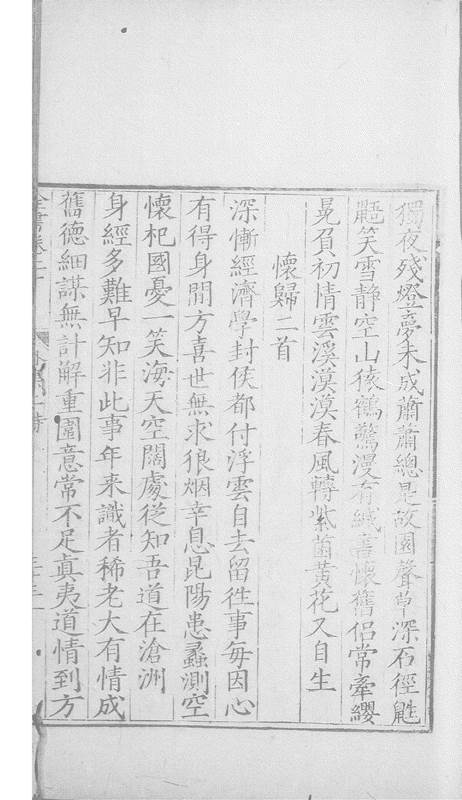 獨夜殘燈夢未成蕭蕭總是故園聲草深石徑鼪
鼯笑雪静空山猿鶴驚漫有緘書懷舊侣常牽纓
冕負初情雲溪漠漠春風轉紫菌黄花又自生
懷歸二首
深慚經濟學封侯都付浮雲自去留徃事每因心
有得身閒方喜世無求狼烟幸息昆陽患蠡測空
懷杞國憂一笑海天空闊處從知吾道在滄洲
身經多難早知非此事年来識者稀老大有情成
舊德細謀無計解重圍意常不足真夷道情到方
全書卷二十